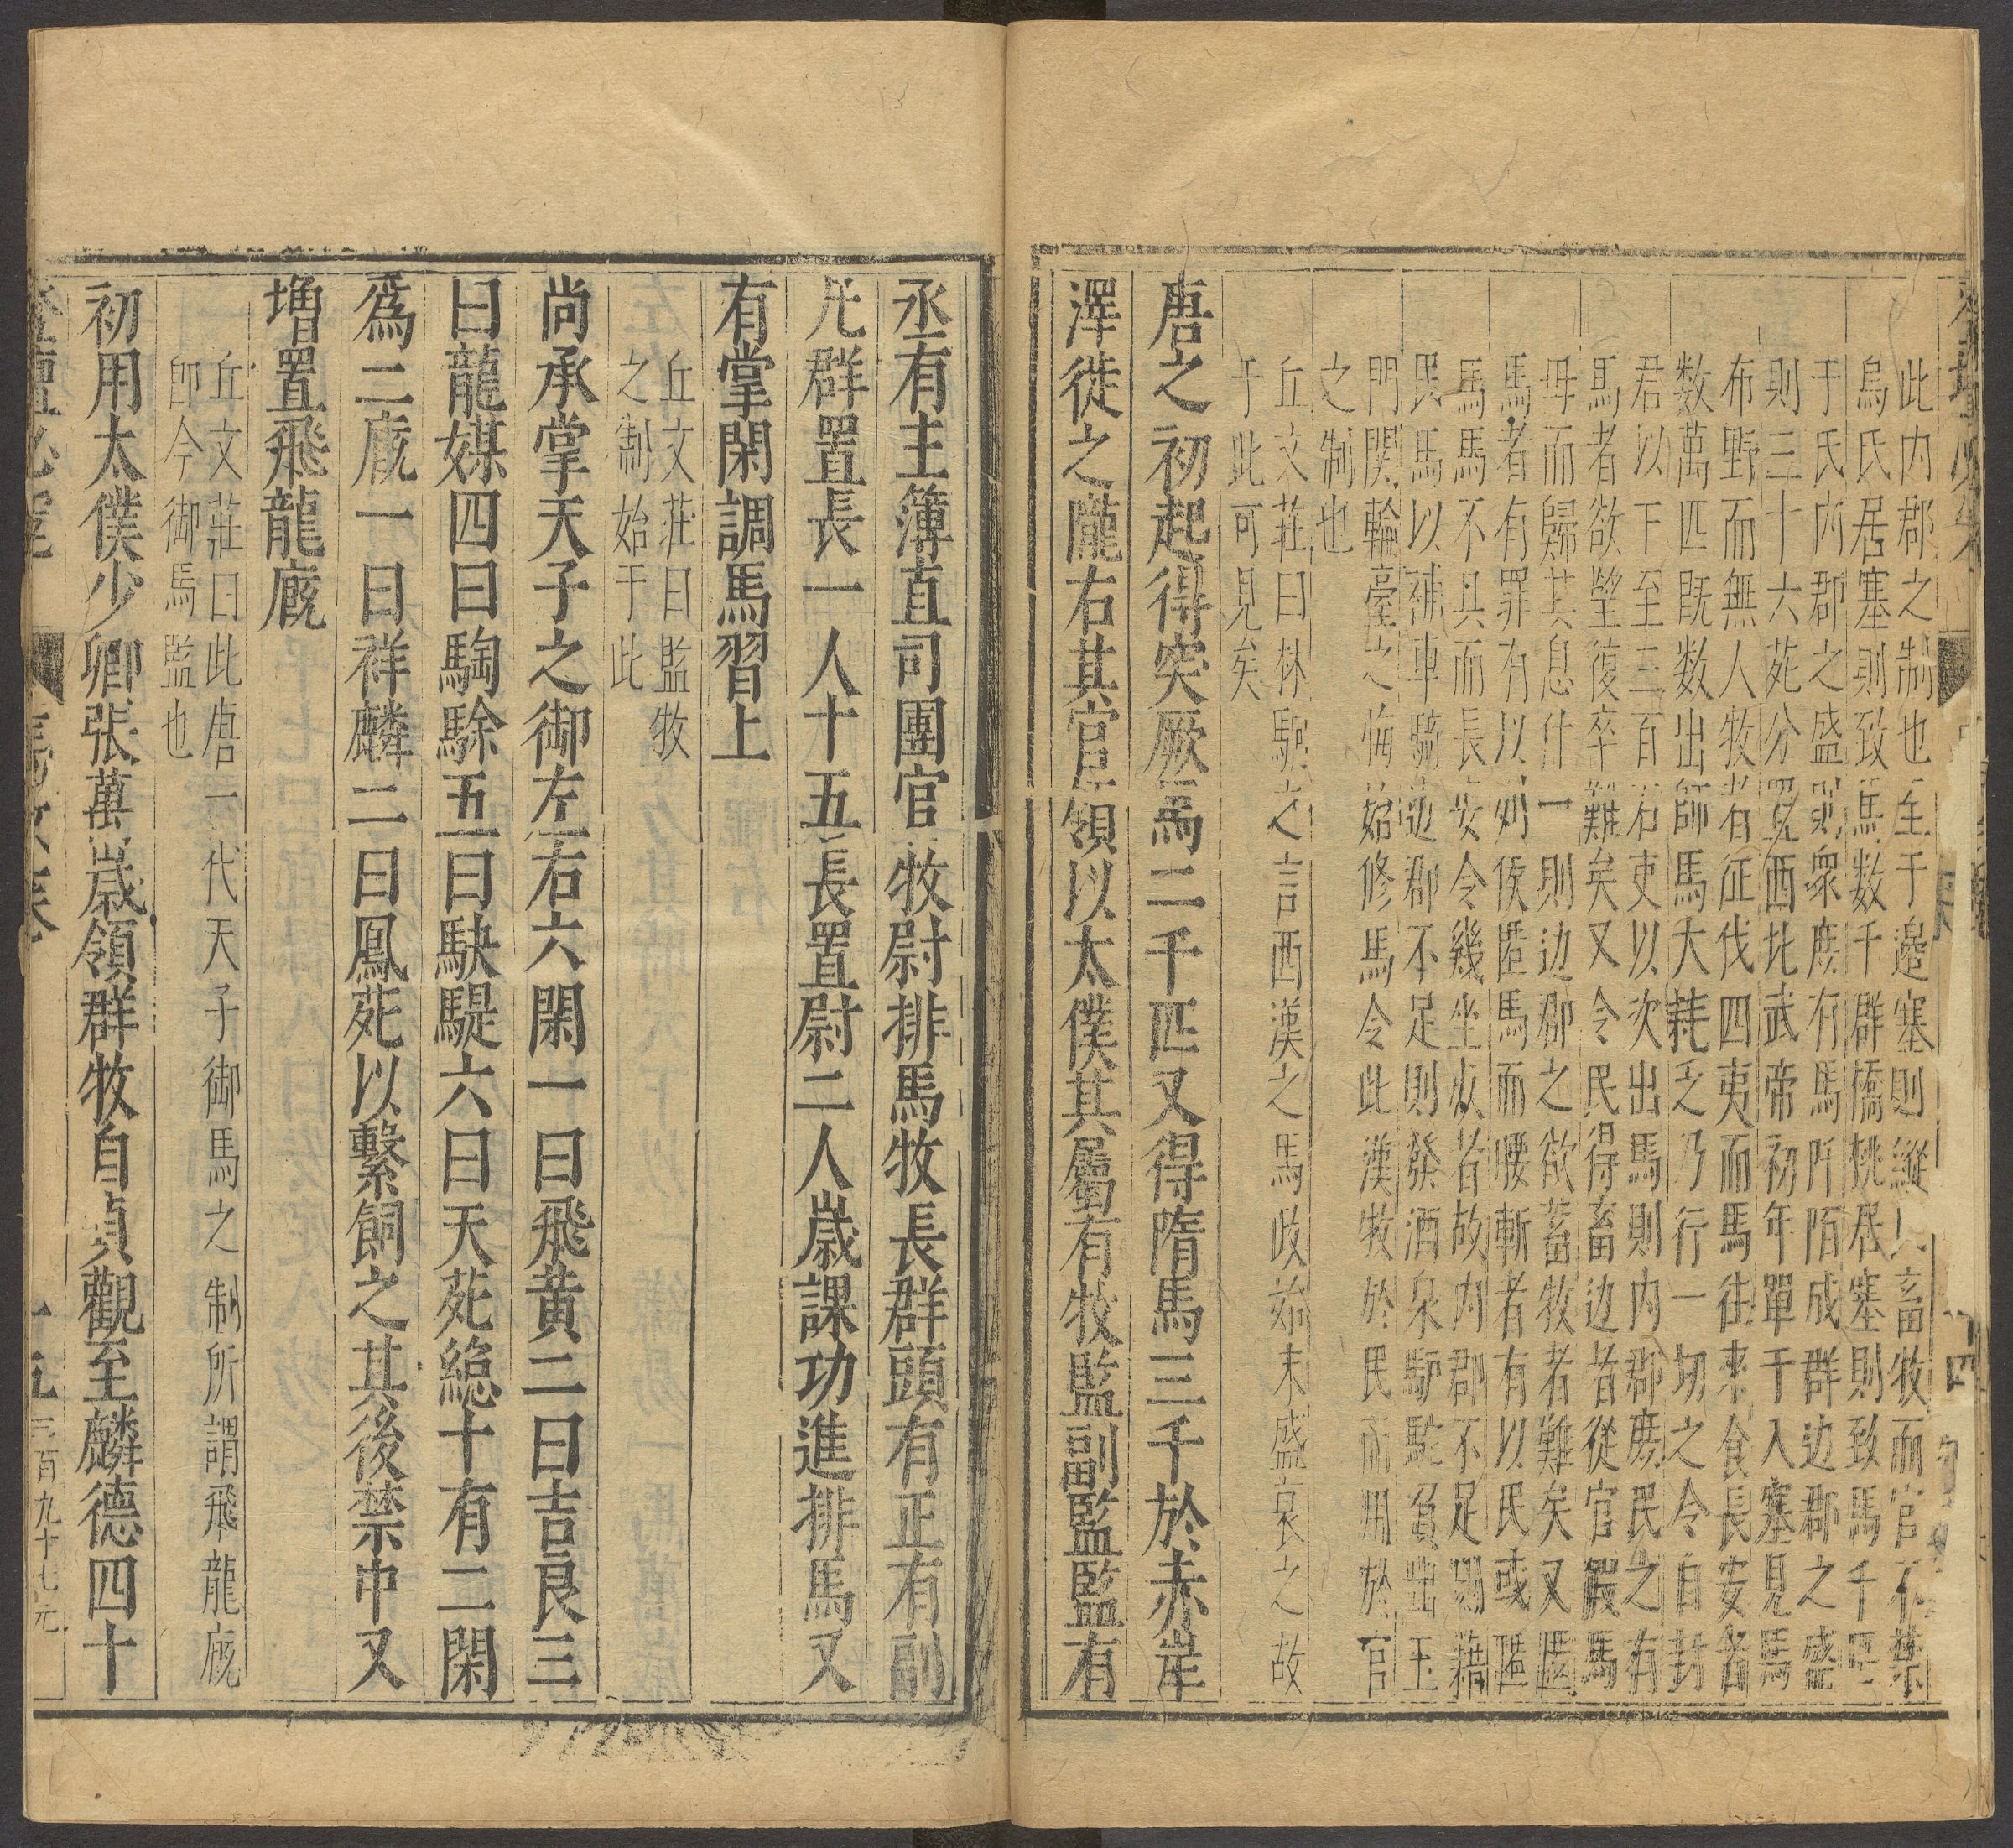 此内郡之制也至于邊塞則縱畜牧而官不禁
烏氏居塞則致馬数千群橋桃居塞則致馬千匹
于氏内郡之盛則衆庶有馬阡陌成群边郡之盛
則三十六苑分置西北武帝初年單于入塞見馬
布野而無人牧者征伐四夷而馬往來食長安者
数萬匹既数出師馬大耗乏乃行一切之令自封
君以下至三百石吏以次出馬則内郡庶民之有
馬者欲望復卒難矣又令民得畜边者從官假馬
母而歸其息什一則边郡之欲蓄牧者難矣又匿
馬者有罪有以列侯匿馬而腰斬者有以民或匿
馬馬不具而長安令幾坐死者故内郡不足則藉
民馬以補車騎边郡不足則發酒泉驢駝負出玉
門関輪臺之悔始修馬令此漢牧於民而用於官
之制也
丘文莊曰林駉之言西漢之馬政始末盛衰之故
于此可見矣
唐之初起得突厥馬二千匹又得隋馬三千於赤岸
澤徙之隴右其官領以太僕其屬有牧監副監監有
丞有主簿直司團官牧尉排馬牧長群頭有正有副
凢群置長一人十五長置尉二人歲課功進排馬又
有掌閑調馬習上
丘文莊曰監牧
之制始于此
尚承掌天子之御左右六閑一曰飛黃二曰吉良三
曰龍媒四曰騊駼五曰駃騠六曰天苑総十有二閑
爲二廐一曰祥麟二曰鳳苑以繫飼之其後禁中又
增置飛龍廐
丘文莊曰此唐一代天子御馬之制所謂飛龍廐
即今御馬監也
初用太僕少卿張萬歲領群牧自貞觀至麟德四十
十五
三百九十七元